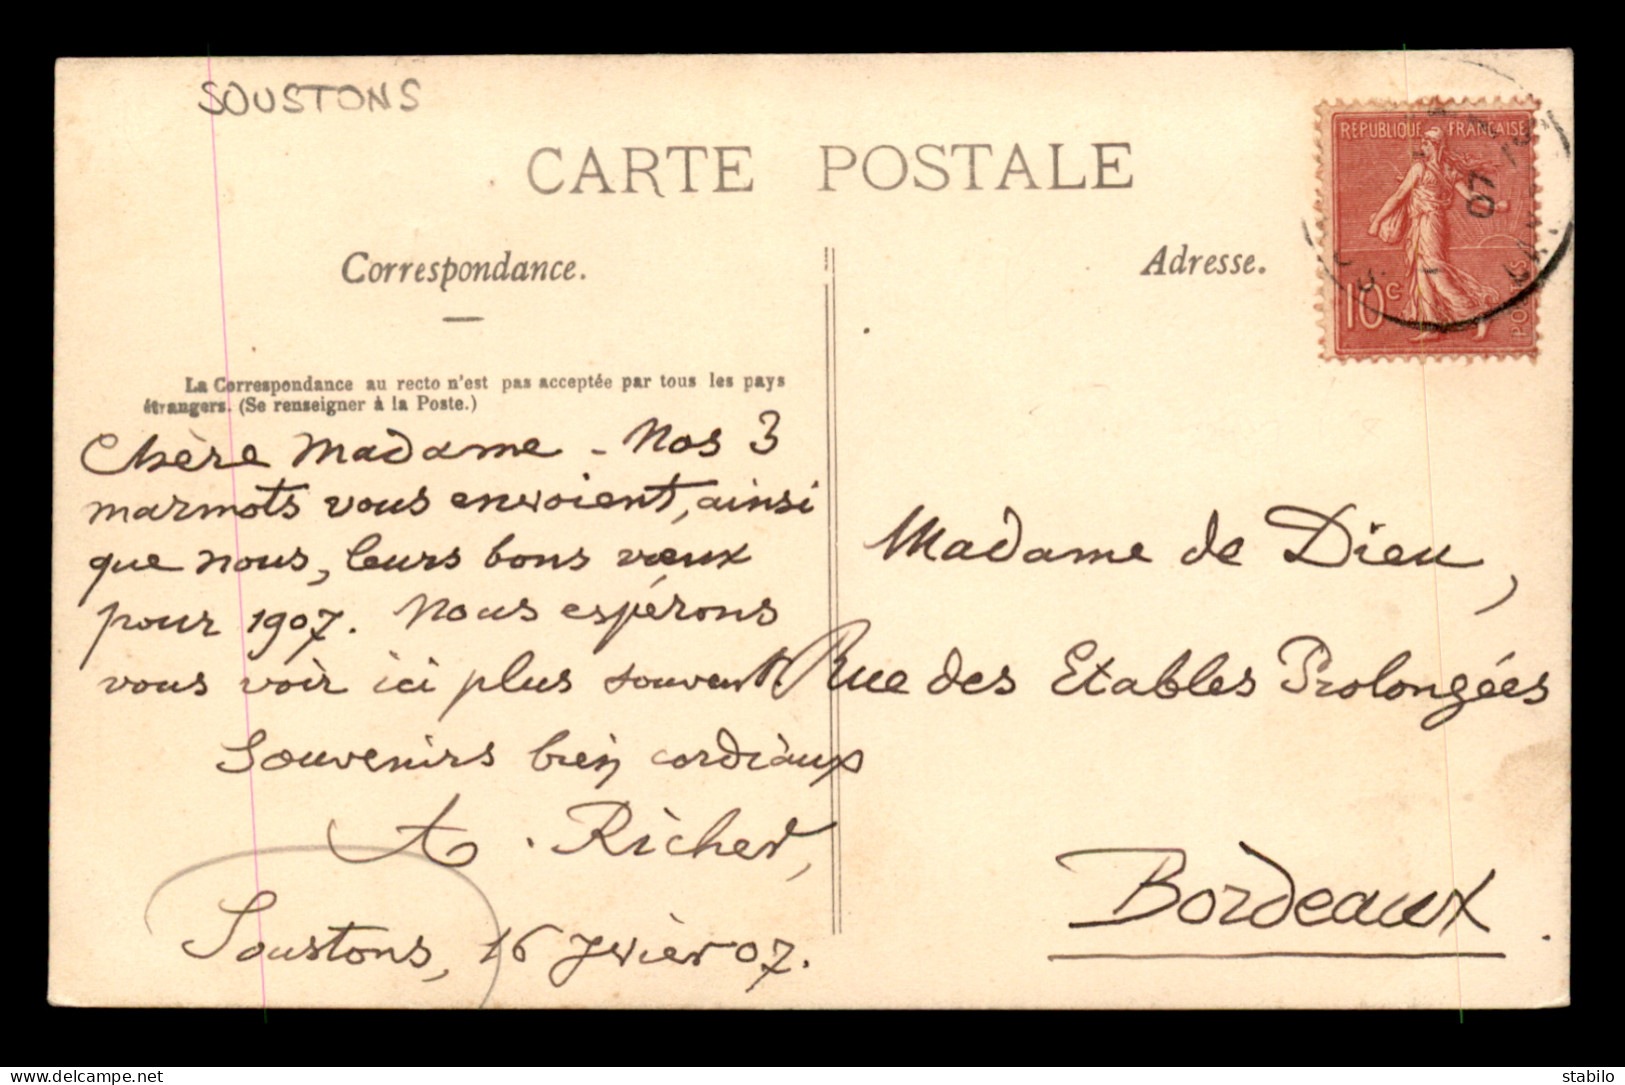 SOUSTONS
CARTE POSTALE
Correspondance.
Adresse.
REPUBLIQUE FRANÇAISE
10c
07
La Correspondance au recto n'est pas acceptée par tous les pays
étrangers. (Se renseigner à la Poste.)
Chère Madame - Nos 3
marmots vous envoient, ainsi
que nous, leurs bons vœux
pour 1907. Nous espérons
vous voir ici plus souvent.
Souvenirs bien cordiaux
A. Richer,
Soustons, 16 Jvier 07.
Madame de Dieu,
Rue des Etables Prolongées
Bordeaux.
delcampe.net
stabilo